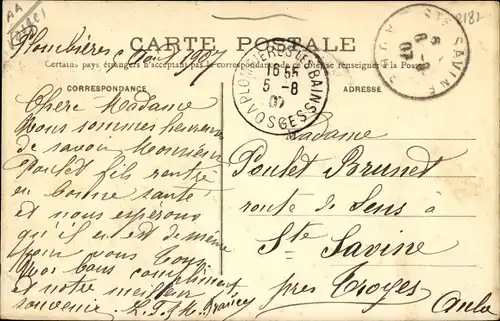 Plombières 5 Août 1907
CARTE POSTALE
Certains pays étrangers n'acceptant pas la correspondance de ce côté se renseigner à la Poste
CORRESPONDANCE
ADRESSE
PLOMBIÈRES LES BAINS
16 55
5 -8
07
VOSGES
STE SAVINE
AUBE
6 -8
07
Chère Madame
Nous sommes heureux
de savoir Monsieur
Poulet fils rentré
en bonne santé
et nous espérons
qu'il en est de même
pour vous tous
bons compliments
et notre meilleur
souvenir
Madame
Poulet Brunet
route de Sens à
Ste Savine
près Troyes
Aube